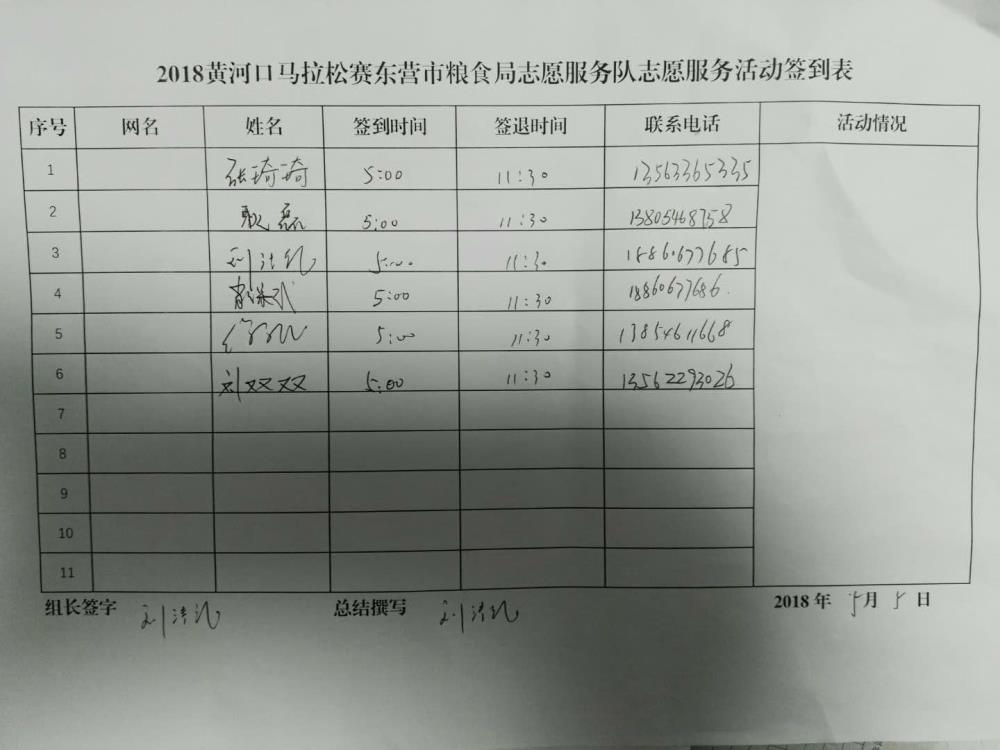 2018黄河口马拉松赛东营市粮食局志愿服务队志愿服务活动签到表
序号 网名 姓名 签到时间 签退时间 联系电话 活动情况
1 张琦琦 5:00 11:30 13563365335
2 耿磊 5:00 11:30 13805468758
3 5:00 11:30 18860677685
4 5:00 11:30 18860677686
5 5:00 11:30 13854611668
6 刘双双 5:00 11:30 13562293026
7
8
9
10
11
组长签字 总结撰写 2018 年 5月 5 日